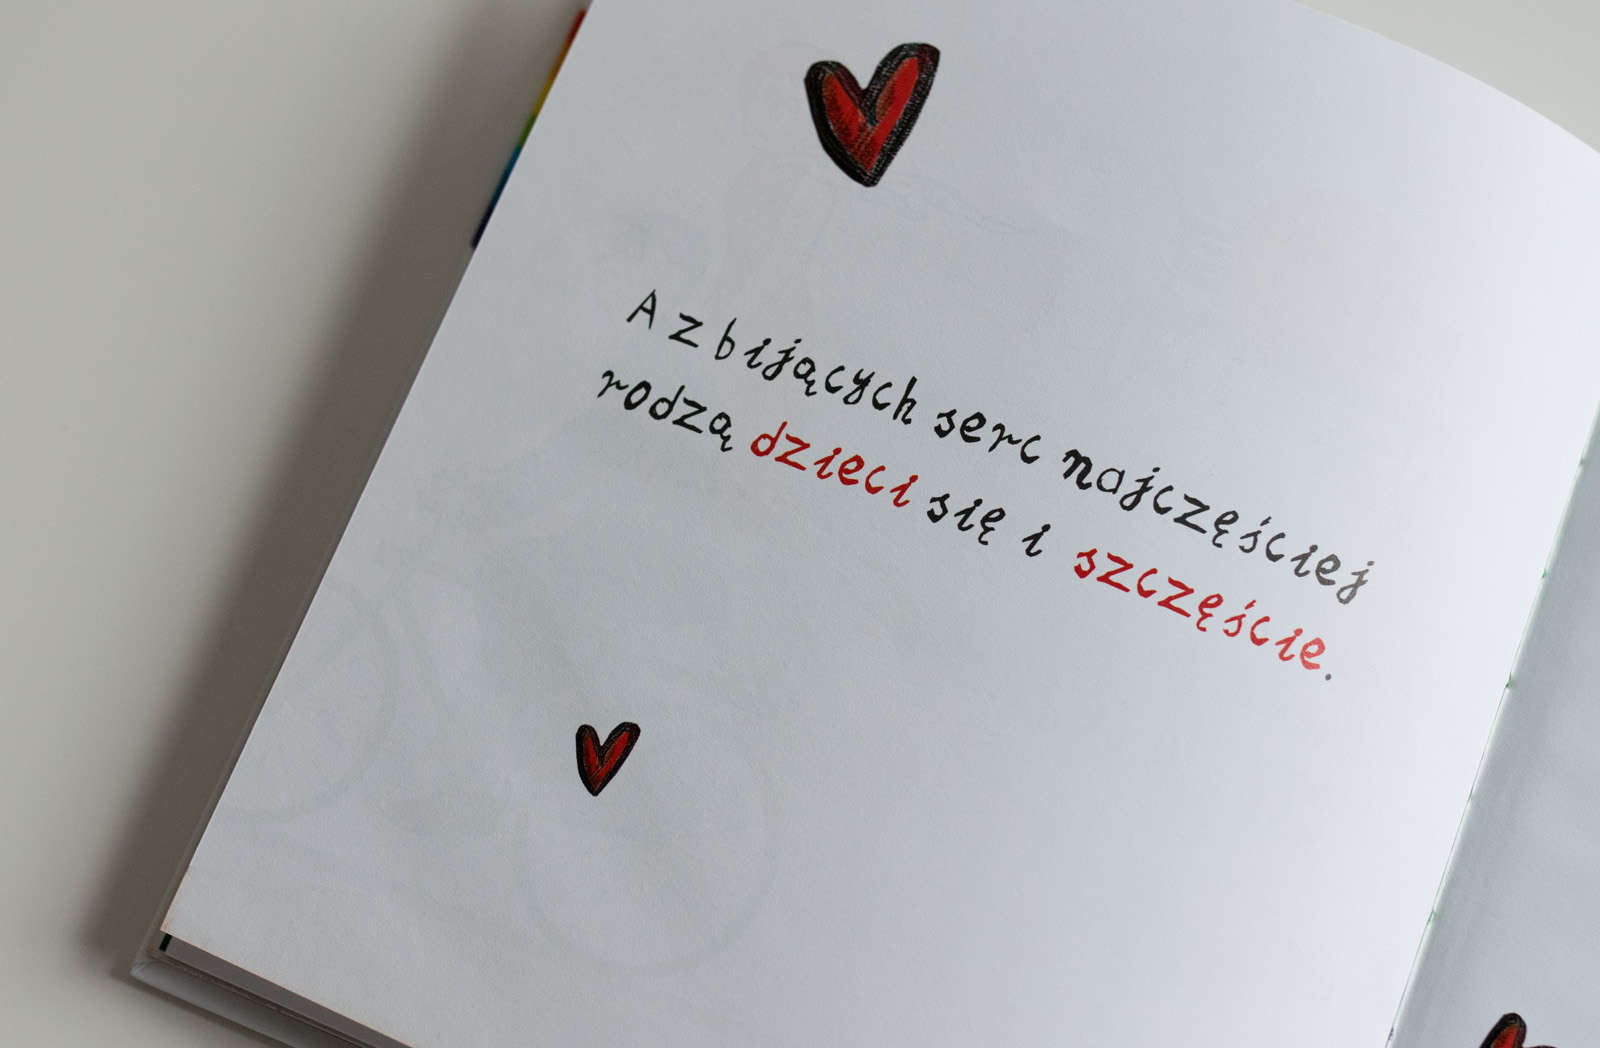 A z bijących serc najczęściej
rodzą dzieci się i szczęście.